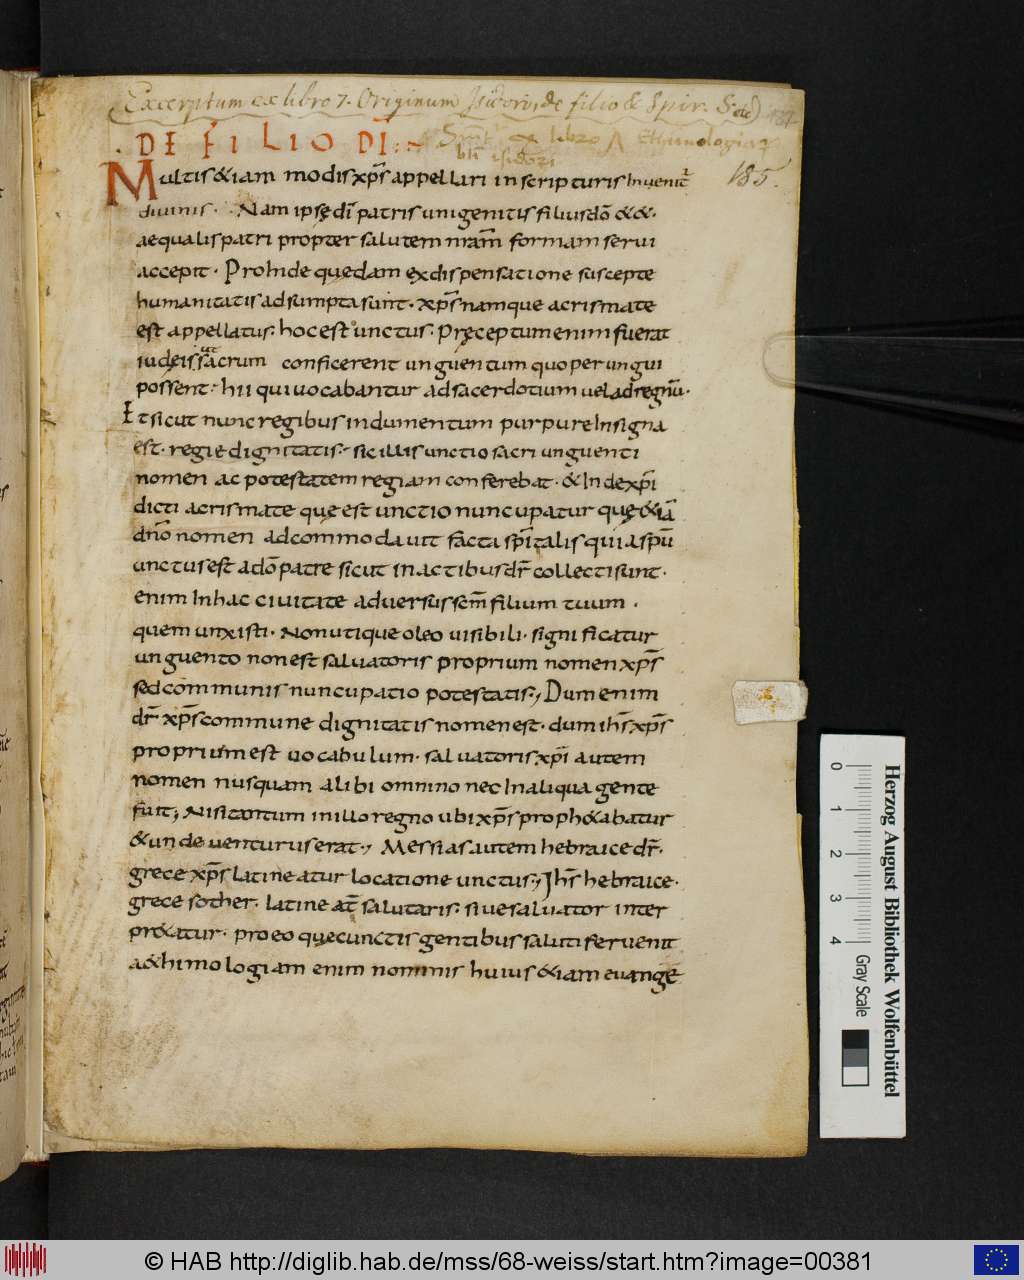 Excerptum ex libro 7. Originum Isidori, de filio & Spir. S.
DE FILIO DĪ
ex libro Ethimologiarum
isidori
185.
Multis &iam modis xp̄s appellari in scripturis Inuenit̄
diuinis. Nam ipse dī patris unigenitis filius dō &&.
aequalis patri propter salutem nr̄am formam serui
accepit. ProInde quędam ex dispensatione suscepte
humanitatis adsumpta sunt. xp̄s namque a crismate
est appellatus. hoc est unctus. Pręceptum enim fuerat
iudęis ut sacrum conficerent unguentum quo perungui
possent. hii qui uocabantur ad sacerdotium uel ad regnū.
Et sicut nunc regibus indumentum purpure Insigna
est. regie dignitatis. sic illis unctio sacri unguenti
nomen ac potestatem regiam conferebat. & Inde xp̄i
dicti a crismate que est unctio nuncupatur quę &iā
dn̄o nomen adcommodauit facta sp̄italis quia sp̄u
unctus est a dō patre sicut in actibus dr̄ collecti sunt.
enim In hac ciuitate aduersus scm̄ filium tuum.
quem unxisti. Non utique oleo uisibili. significatur
unguento non est saluatoris proprium nomen xp̄s
sed communis nuncupatio potestatis. Dum enim
dr̄ xp̄s commune dignitatis nomen est. dum ih̄s xp̄s
proprium est uocabulum. saluatoris. xp̄i autem
nomen nusquam alibi omnino nec In aliqua gente
fuit; Nisi tantum in illo regno ubi xp̄s proph&abatur
& unde uenturus erat. Messias autem hebraice dr̄.
grece xp̄s latine atur locatione unctus. Ih̄s hebraice.
grece sother. latine at̄ salutaris. siue saluator inter
pr&atur. pro eo que cunctis gentibus salutifer uenit
a&himologiam enim nominis huius &iam euange
0 1 2 3 4
Gray Scale
Herzog August Bibliothek Wolfenbüttel
© HAB http://diglib.hab.de/mss/68-weiss/start.htm?image=00381